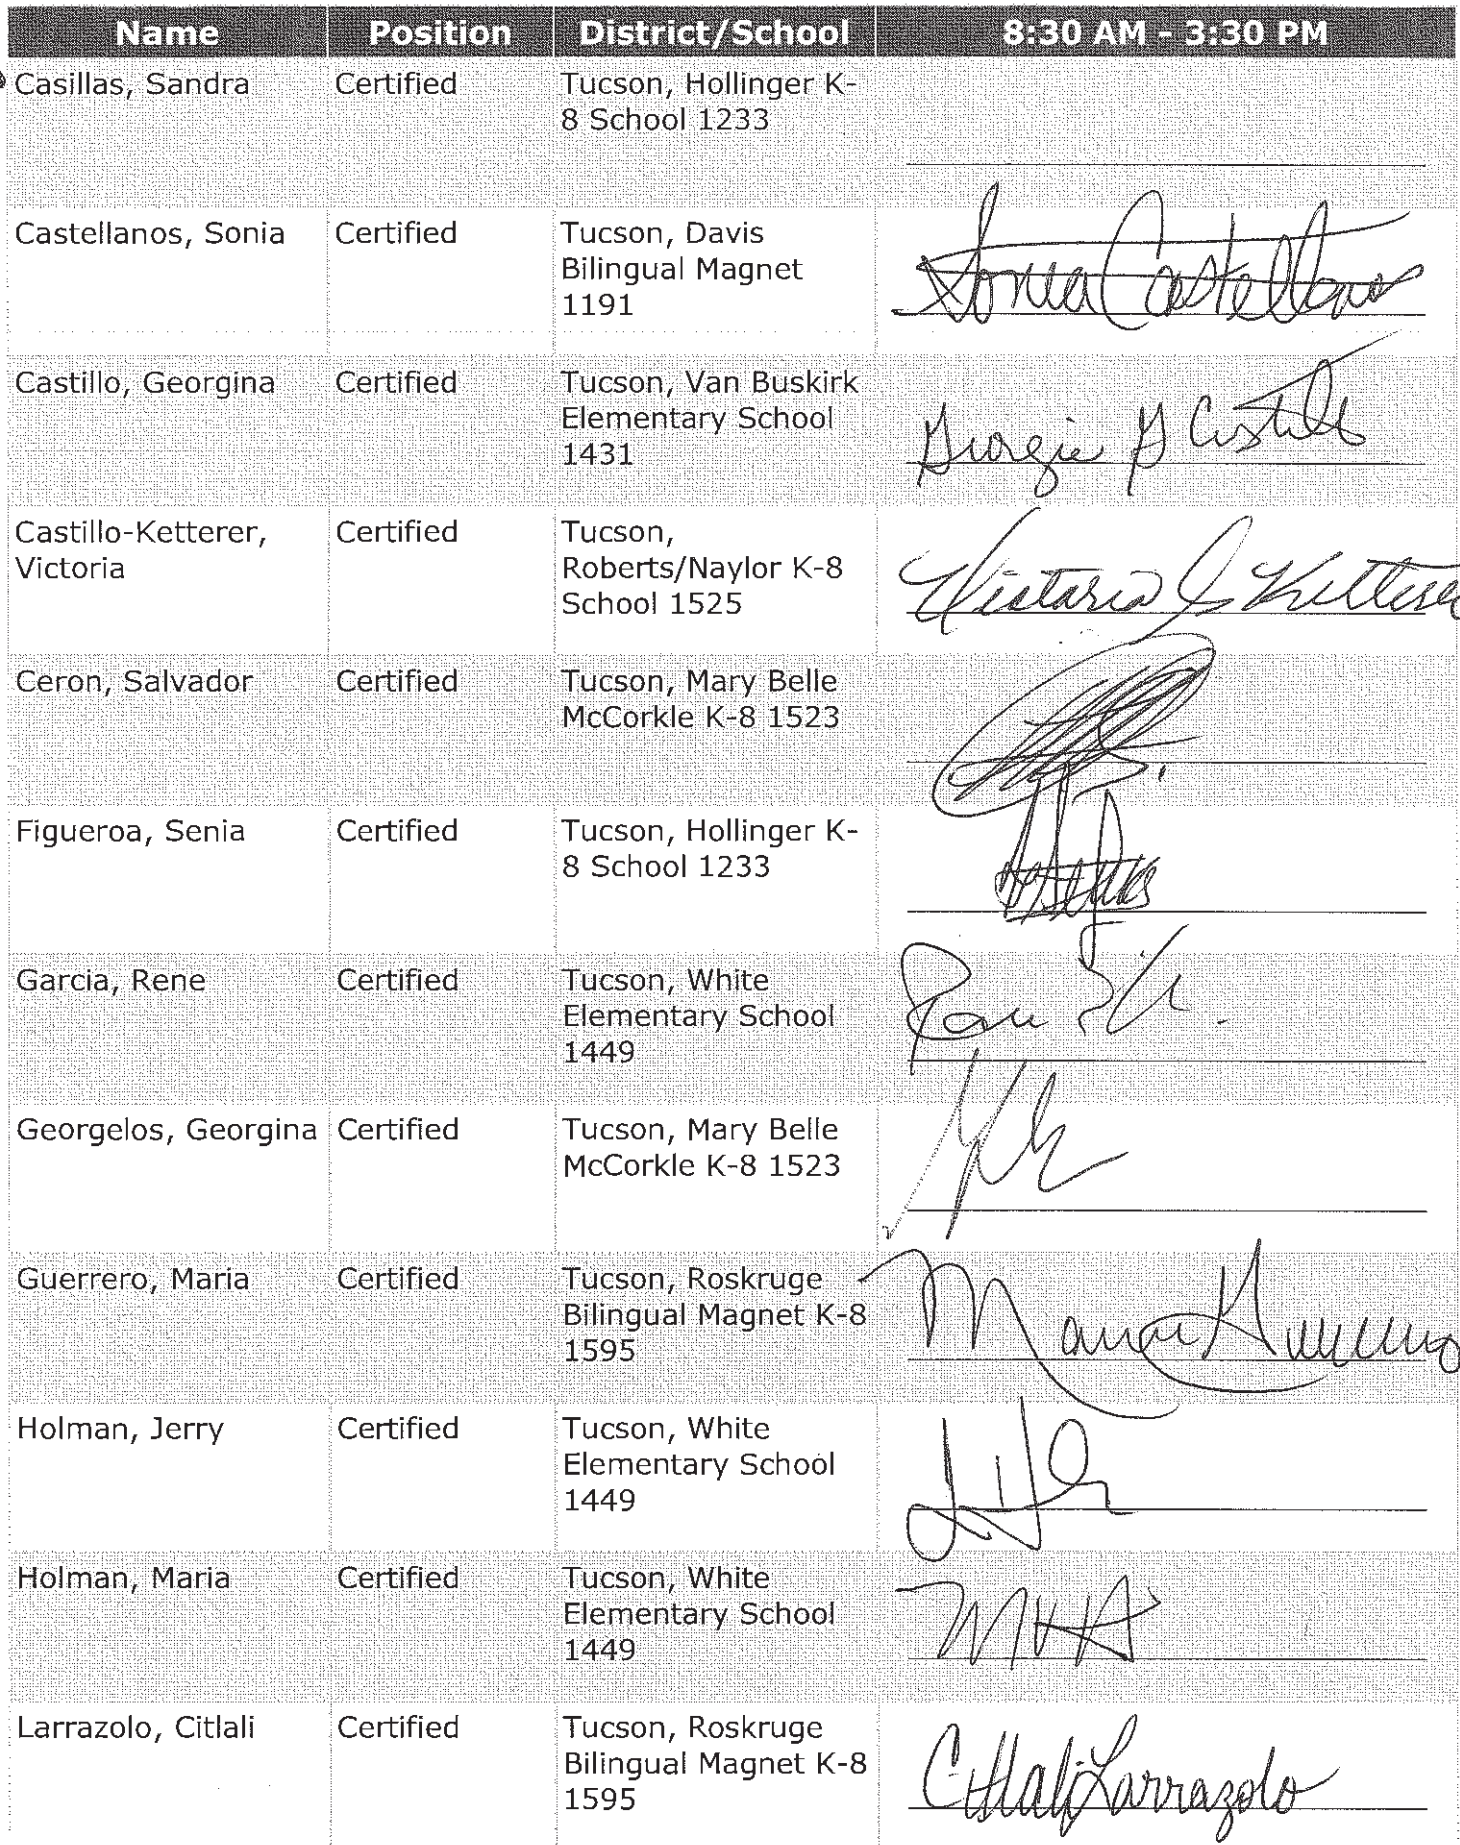 Name Position District/School 8:30 AM - 3:30 PM
Casillas, Sandra Certified Tucson, Hollinger K-
8 School 1233
Castellanos, Sonia Certified Tucson, Davis
Bilingual Magnet
1191 Sonia Castellanos
Castillo, Georgina Certified Tucson, Van Buskirk
Elementary School
1431 Georgie G Castillo
Castillo-Ketterer, Certified Tucson,
Victoria Roberts/Naylor K-8
School 1525 Victoria J Ketterer
Ceron, Salvador Certified Tucson, Mary Belle
McCorkle K-8 1523
Figueroa, Senia Certified Tucson, Hollinger K-
8 School 1233
Garcia, Rene Certified Tucson, White
Elementary School
1449
Georgelos, Georgina Certified Tucson, Mary Belle
McCorkle K-8 1523
Guerrero, Maria Certified Tucson, Roskruge
Bilingual Magnet K-8
1595 Maria Guerrero
Holman, Jerry Certified Tucson, White
Elementary School
1449
Holman, Maria Certified Tucson, White
Elementary School
1449
Larrazolo, Citlali Certified Tucson, Roskruge
Bilingual Magnet K-8
1595 Citlali Larrazolo